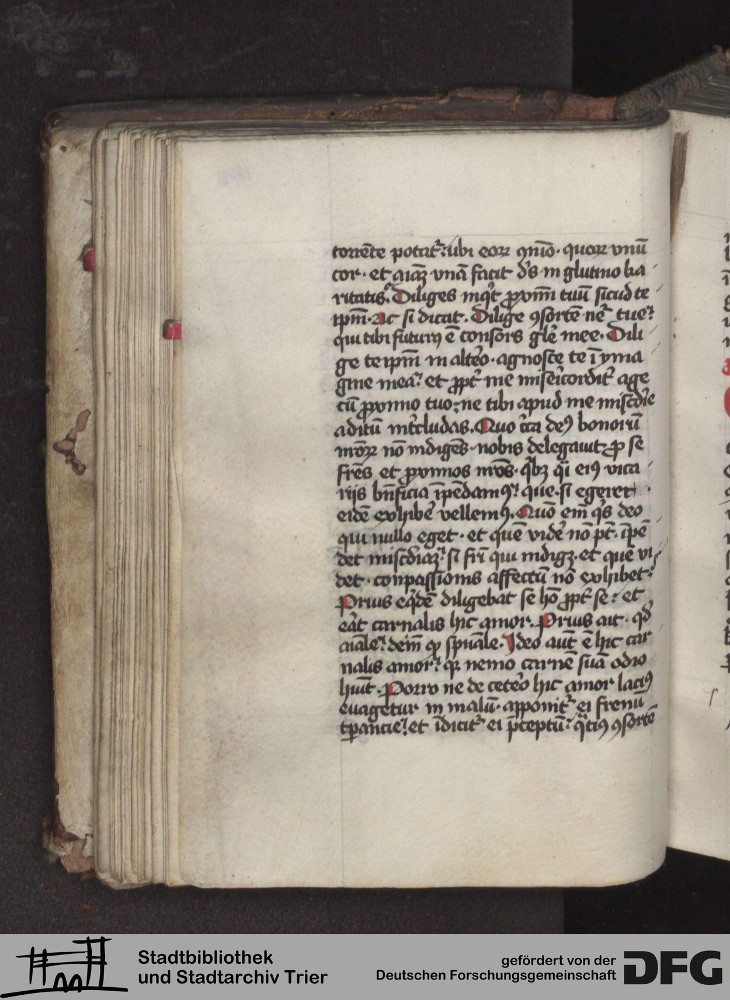 torrẽte potat᷑: ubi eoꝝ ꝯnio · quoꝝ vnũ
cor · et aiãʒ vnã facit ds̃ in glutino ka
ritatis. Diliges inqͥt ꝓximũ tuũ sicud te
ip̃m · Ac si dicat. Dilige ꝯsortẽ ne᷑ tue
qui tibi futurꝰ ẽ consors gl̃e mee · Dili
ge te ip̃m in alt̾o · agnosce te ĩ yma
gine mea: et ꝓpt̾ me misericordit̾ age
cũ ꝓximo tuo: ne tibi apud me miscd̃ie
aditũ int̾cludas. Quo c̃ca deꝰ bonorũ
nr̃oꝝ nõ indigẽs · nobis delegauit ꝓ se
fr̃es et ꝓximos nr̃os · qͥbʒ qͣi eiꝰ vica
rijs bñficia ĩpẽdamꝰ: que · si egeret ·
eidẽ exhibe᷑ vellemꝰ. Quõ em̃ qͥs deo
qui nullo eget · et quẽ vide᷑ nõ pt̃ · ĩpẽ
det miscd̃iaʒ: si fr̃i qui indigʒ · et quẽ vi
det · conpassionis affectũ nõ exhibet:
Prius eqͥdẽ diligebat se hõ ꝓpt̾ se: et
eãt carnalis hic amor. Prius ait · qd̃
aiãle: dein̄ qͦ sp̃uale. Ideo aut̃ ẽ hic car
nalis amor: qͥ nemo carnẽ suã odio
hũit. Porro ne de cet̾o hic amor laciꝰ
euagetur in malũ · apponit᷑ ei frenũ
tꝑancie: et ĩdicit᷑ ei p̃ceptũ: qͣtiꝰ ꝯsortẽ
Stadtbibliothek
und Stadtarchiv Trier
gefördert von der
Deutschen Forschungsgemeinschaft
DFG